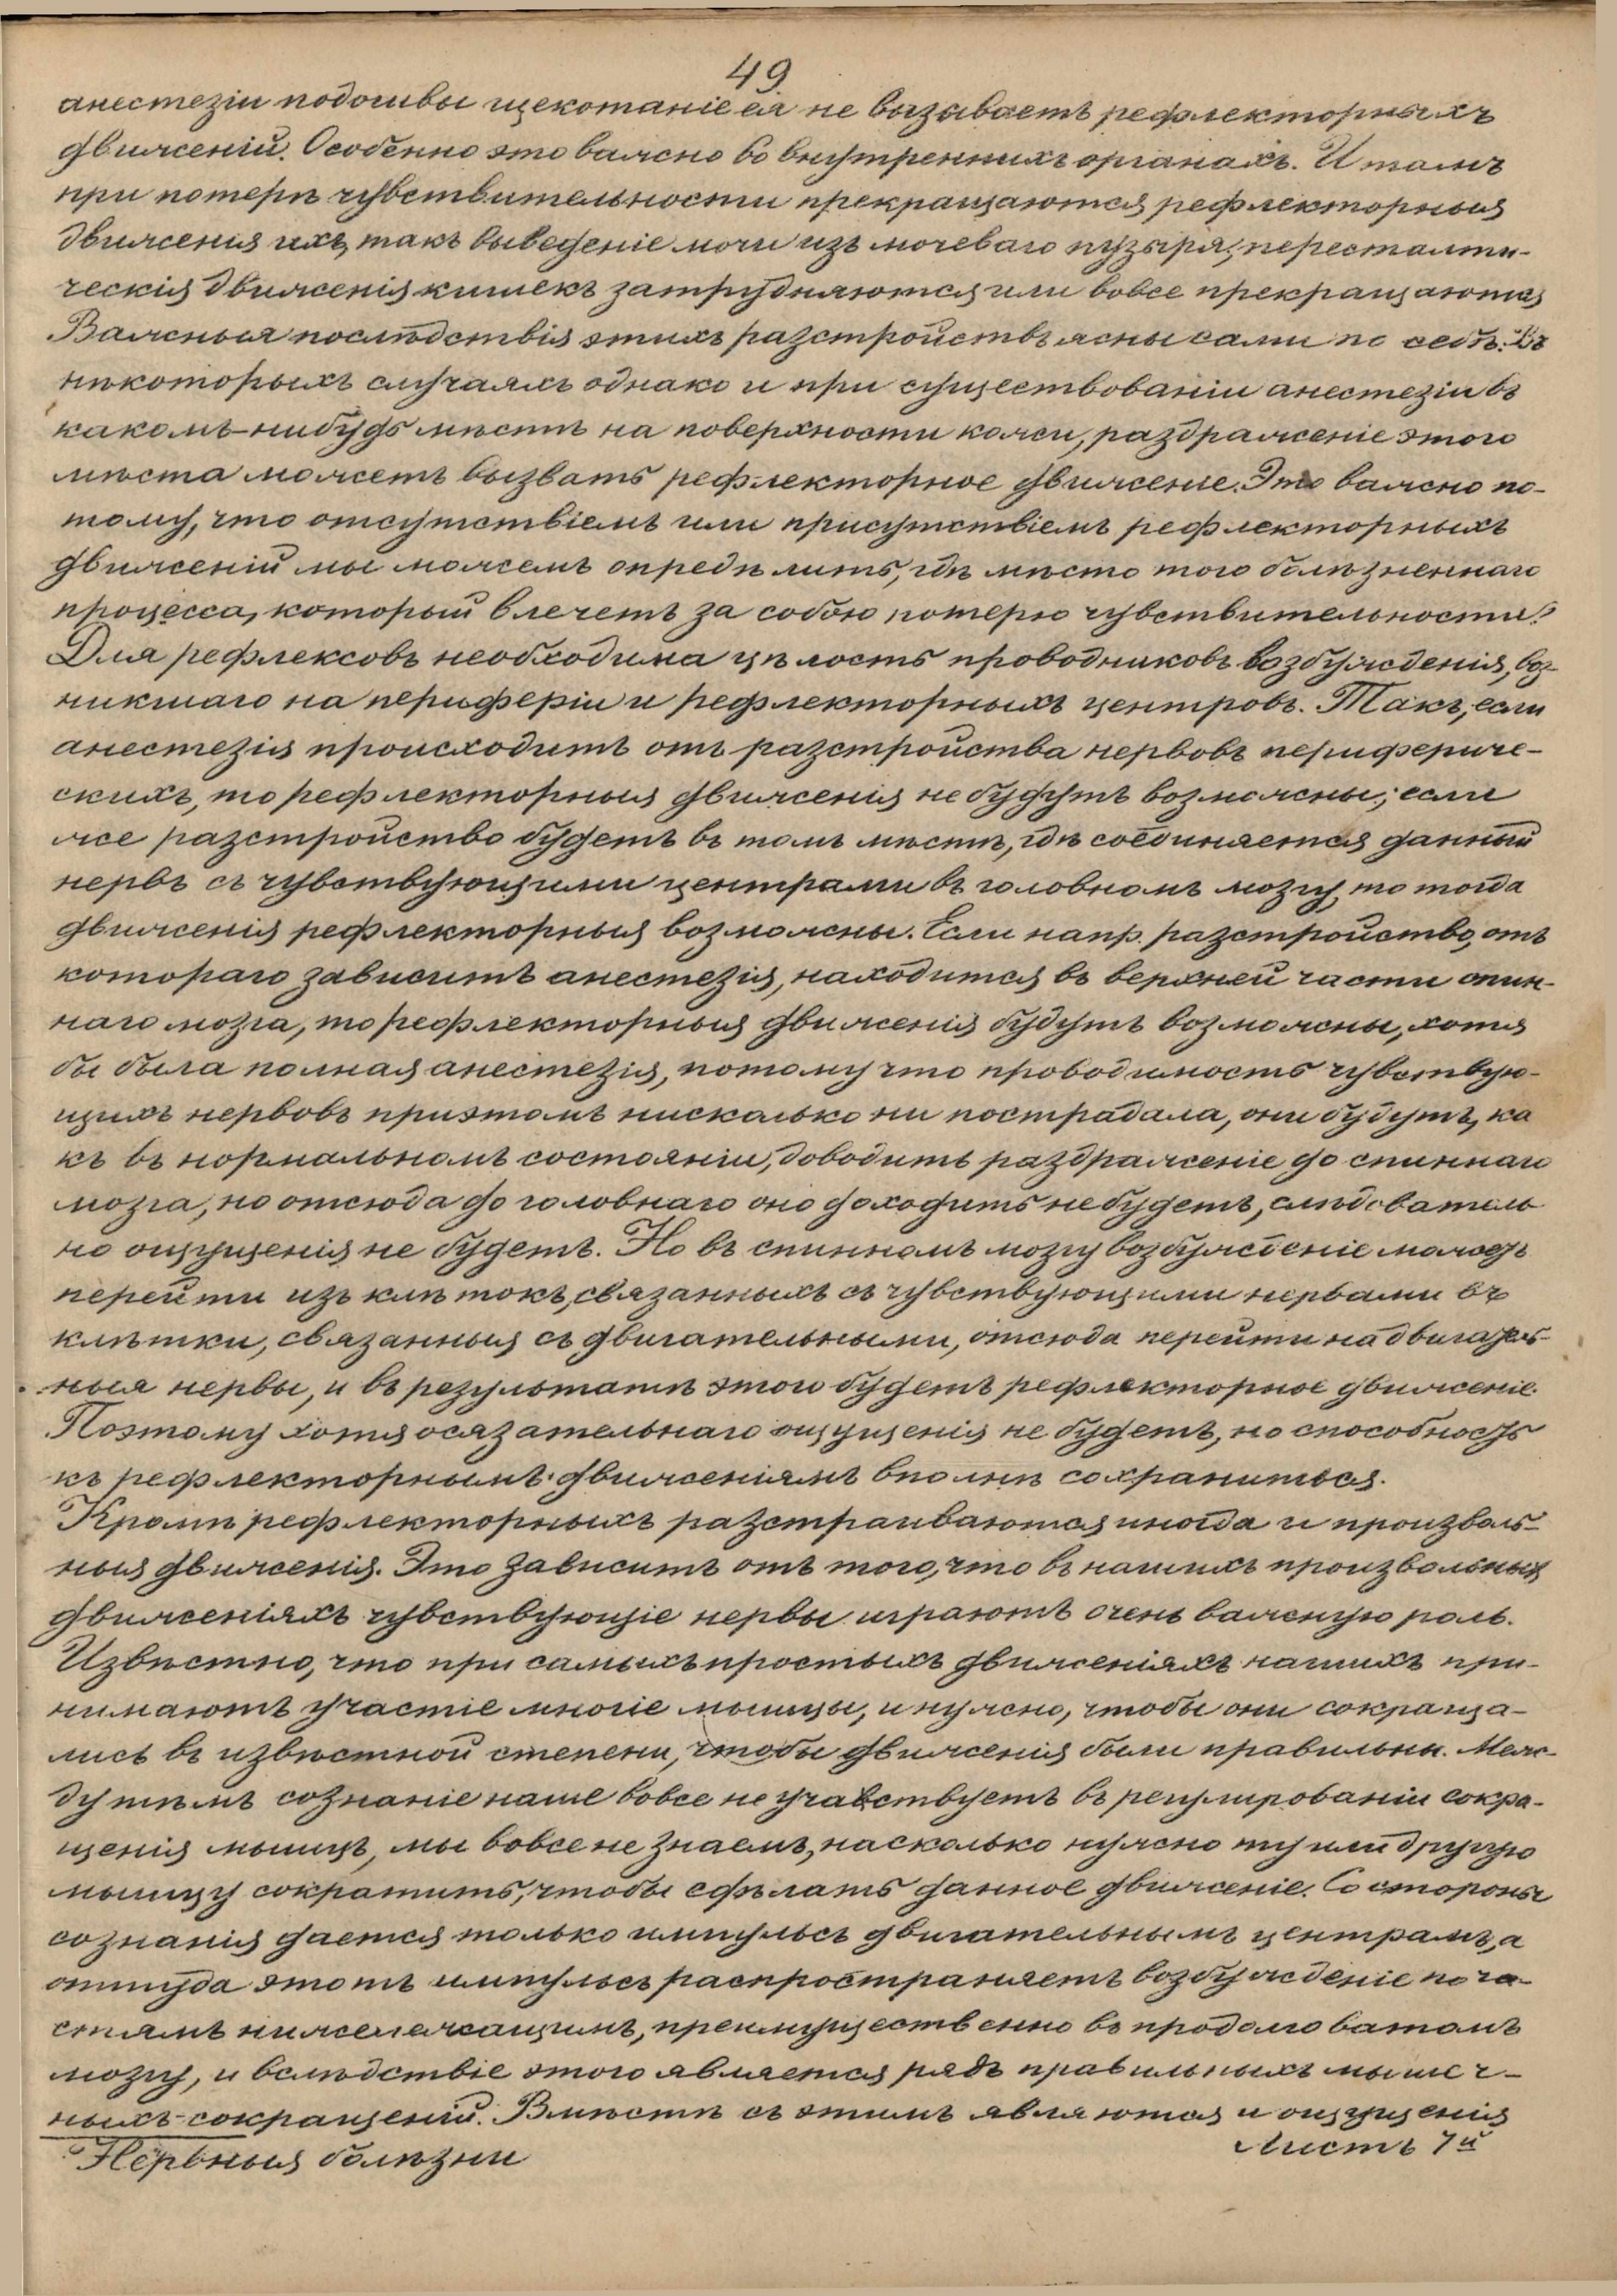 49
анестезіи подошвы щекотаніе ея не вызываетъ рефлекторныхъ
движеній. Особенно это важно во внутреннихъ органахъ. И тамъ
при потерѣ чувствительности прекращаются рефлекторныя
движенія ихъ, такъ выведеніе мочи изъ мочеваго пузыря, пересталти-
ческія движенія кишекъ затрудняются или вовсе прекращаются
Важныя послѣдствія этихъ разстройствъ ясны сами по себѣ. Въ
нѣкоторыхъ случаяхъ однако и при существованіи анестезіи въ
какомъ-нибудь мѣстѣ на поверхности кожи, раздраженіе этого
мѣста можетъ вызвать рефлекторное движеніе. Это важно по-
тому, что отсутствіемъ или присутствіемъ рефлекторныхъ
движеній мы можемъ опредѣлить, гдѣ мѣсто того болѣзненнаго
процесса, который влечетъ за собою потерю чувствительности?
Для рефлексовъ необходима цѣлость проводниковъ возбужденія, воз-
никшаго на периферіи и рефлекторныхъ центровъ. Такъ, если
анестезія происходитъ отъ разстройства нервовъ перифериче-
скихъ, то рефлекторныя движенія не будутъ возможны; если
же разстройство будетъ въ томъ мѣстѣ, гдѣ соединяется данный
нервъ съ чувствующими центрами въ головномъ мозгу, то тогда
движенія рефлекторныя возможны. Если напр. разстройство, отъ
котораго зависитъ анестезія, находится въ верхней части спин-
наго мозга, то рефлекторныя движенія будутъ возможны, хотя
бы была полная анестезія, потому что проводимость чувствую-
щихъ нервовъ приэтомъ нисколько ни пострадала, они будутъ, ка
къ въ нормальномъ состояніи, доводить раздраженіе до спиннаго
мозга, но отсюда до головнаго оно доходить не будетъ, слѣдователь
но ощущенія не будетъ. Но въ спинномъ мозгу возбужденіе можетъ
перейти изъ клѣтокъ, связанныхъ съ чувствующими нервами въ
клѣтки, связанныя съ двигательными, отсюда перейти на двигатель-
ныя нервы, и въ результатѣ этого будетъ рефлекторное движеніе.
Поэтому хотя осязательнаго ощущенія не будетъ, но способность
къ рефлекторнымъ движеніямъ вполнѣ сохраниться.
Кромѣ рефлекторныхъ разстраиваются иногда и произволь-
ныя движенія. Это зависитъ отъ того, что въ нашихъ произвольныхъ
движеніяхъ чувствующіе нервы играютъ очень важную роль.
Извѣстно, что при самыхъ простыхъ движеніяхъ нашихъ при-
нимаютъ участіе многіе мышцы, и нужно, чтобы они сокраща-
лись въ извѣстной степени, чтобы движенія были правильны. Меж-
ду тѣмъ сознаніе наше вовсе не учавствуетъ въ регулированіи сокра-
щенія мышцъ, мы вовсе не знаемъ, насколько нужно ту или другую
мышцу сократить, чтобы сдѣлать данное движеніе. Со стороны
сознанія дается только импульсъ двигательнымъ центрамъ, а
оттуда этотъ импульсъ распространяетъ возбужденіе по ча-
стямъ нижележащимъ, преимущественно въ продолговатомъ
мозгу, и вслѣдствіе этого является рядъ правильныхъ мышеч-
ныхъ сокращеній. Вмѣстѣ съ этимъ являются и ощущенія
Нервныя болѣзни
Листъ 7й